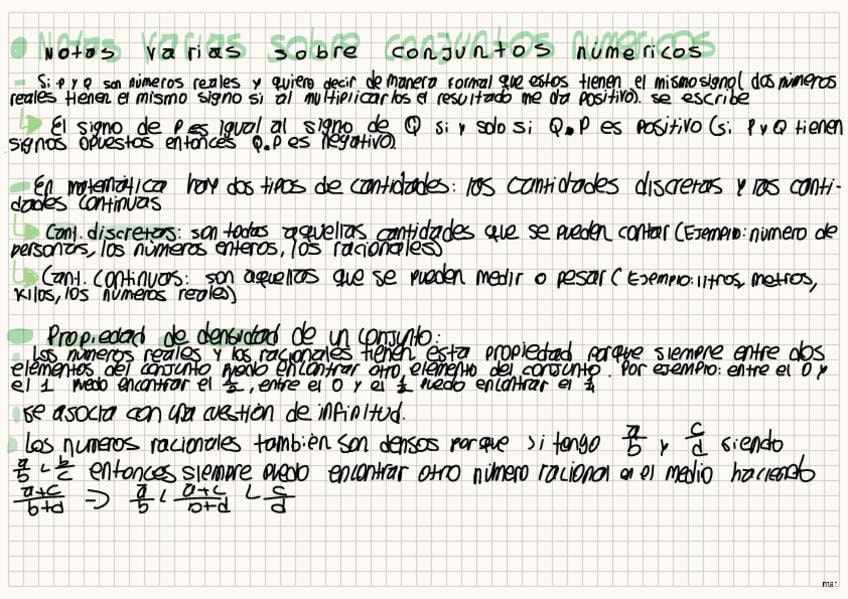 Notas varias sobre conjuntos númericos
- Si P y Q son números reales y quiero decir de manera formal que estos tienen el mismo signo( dos números
reales tienen el mismo signo si al multiplicarlos el resultado me da positivo). se escribe
↳ El signo de P es igual al signo de Q si y solo si Q.P es positivo (si P y Q tienen
signos opuestos entonces Q.P es negativo).
- En matemática hay dos tipos de cantidades: las cantidades discretas y las canti-
dades continuas
↳ Cant. discretas: son todas aquellas cantidades que se pueden contar (Ejemplo: número de
personas, los números enteros, los racionales)
↳ Cant. continuas: son aquellas que se pueden medir o pesar ( Ejemplo: litros, metros,
kilos, los números reales)
- Propiedad de densidad de un conjunto:
Los números reales y los racionales tienen esta propiedad porque siempre entre dos
elementos del conjunto puedo encontrar otro elemento del conjunto. Por ejemplo: entre el 0 y
el 1 puedo encontrar el 1/2, entre el 0 y el 1/2 puedo encontrar el 1/4
se asocia con una cuestión de infinitud.
Los numeros racionales también son densos porque si tengo a/b y c/d siendo
a/b < b/c entonces siempre puedo encontrar otro número racional en el medio haciendo
a+c/b+d => a/b < a+c/b+d < c/d
mar